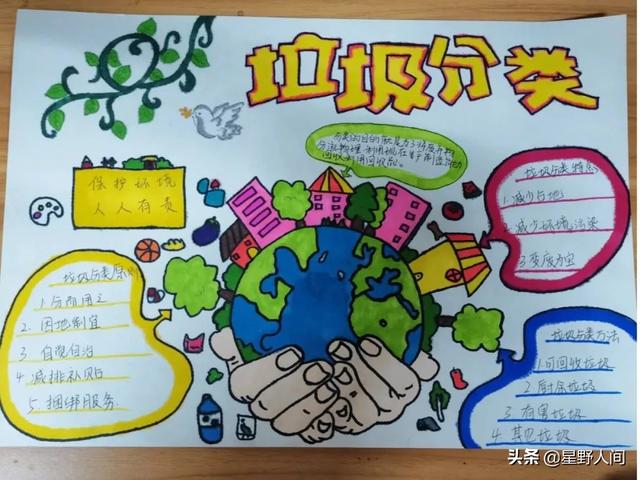 垃圾分类
分类的目的就是为了将废弃物
利用现在生产制造能力
回收利用回收品。
保护环境
人人有责
垃圾分类特点
1.减少占地
2.减少环境污染
3变废为宝
垃圾分类原则
1.分而用之
2.因地制宜
3 自觉自治
4 减排补贴
5.捆绑服务
垃圾分类方法
1.可回收垃圾
2厨余垃圾
3 有害垃圾
4 其它垃圾
头条 @星野人间